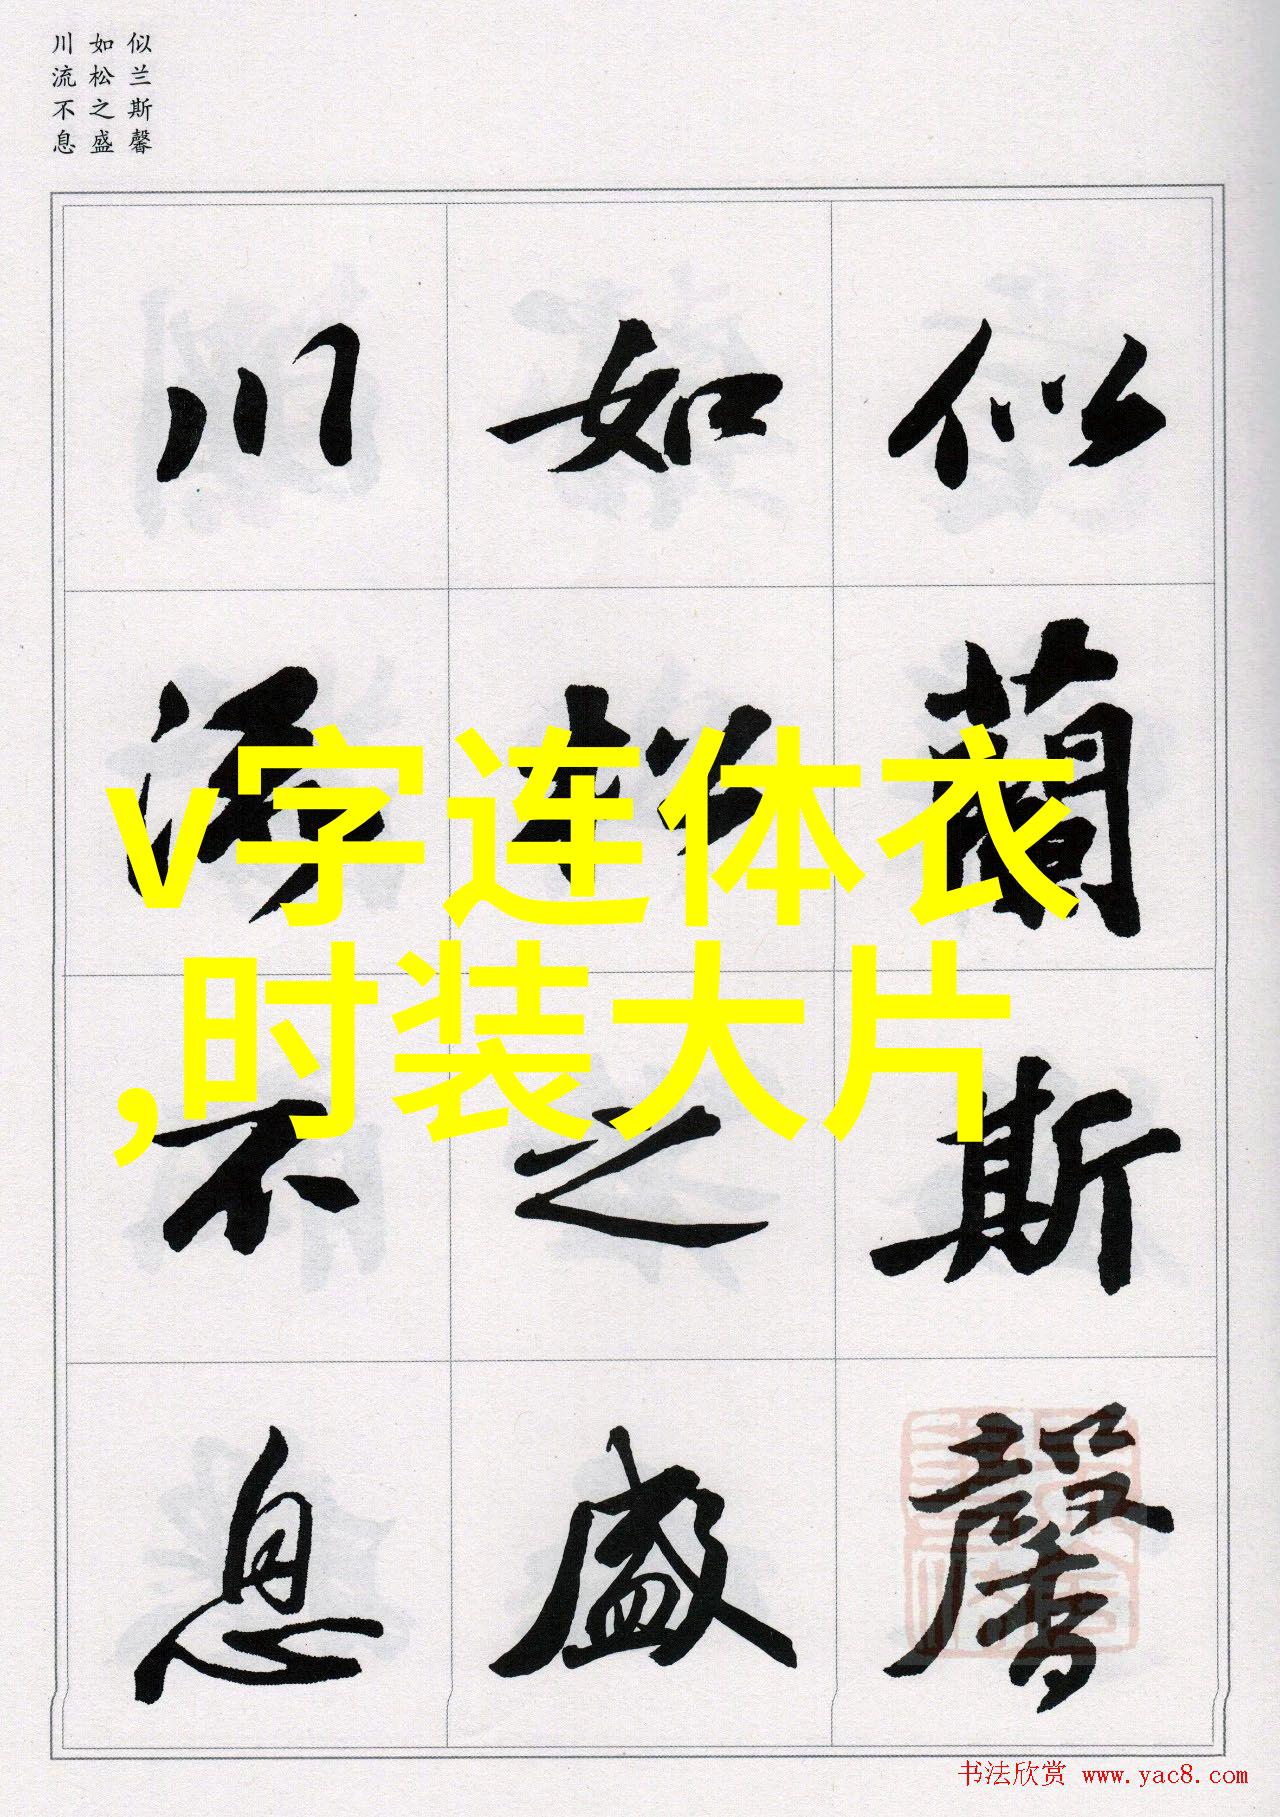 似兰斯馨
如松之盛
川流不息
似蘭斯馨
如松之盛
川流不息
v字连体衣
,时装大片
书法欣赏 www.yac8.com